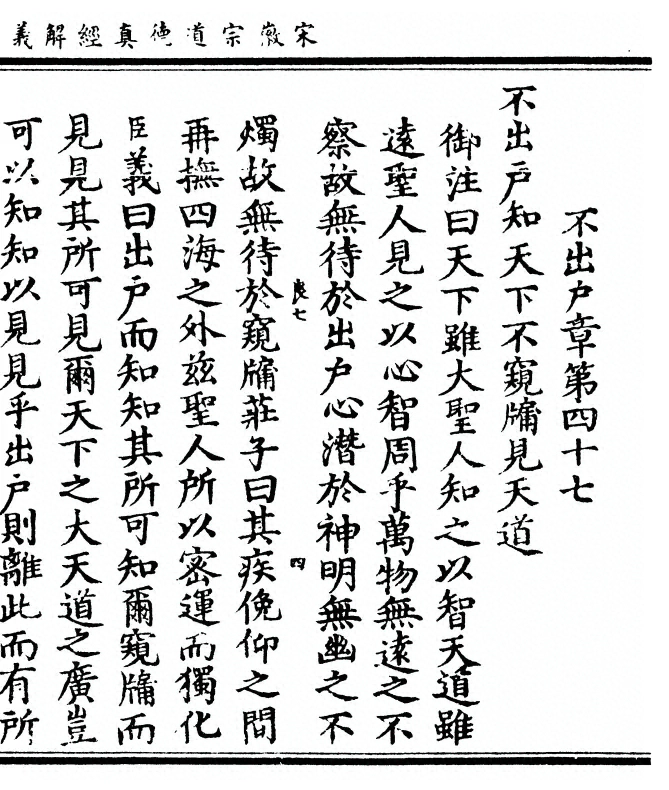 宋徽宗道德真經解義
不出户章第四十七
不出戸知天下不窺牖見天道
御注曰天下雖大聖人知之以智天道雖
遠聖人見之以心智周乎萬物無遠之不
察故無待於出户心潛於神明無幽之不
良七 四
燭故無待於窺牖莊子曰其疾俛仰之間
再撫四海之外兹聖人所以密運而獨化
臣義曰出戸而知知其所可知爾窺牖而
見見其所可見爾天下之大天道之廣豈
可以知知以見見乎出戸則離此而有所